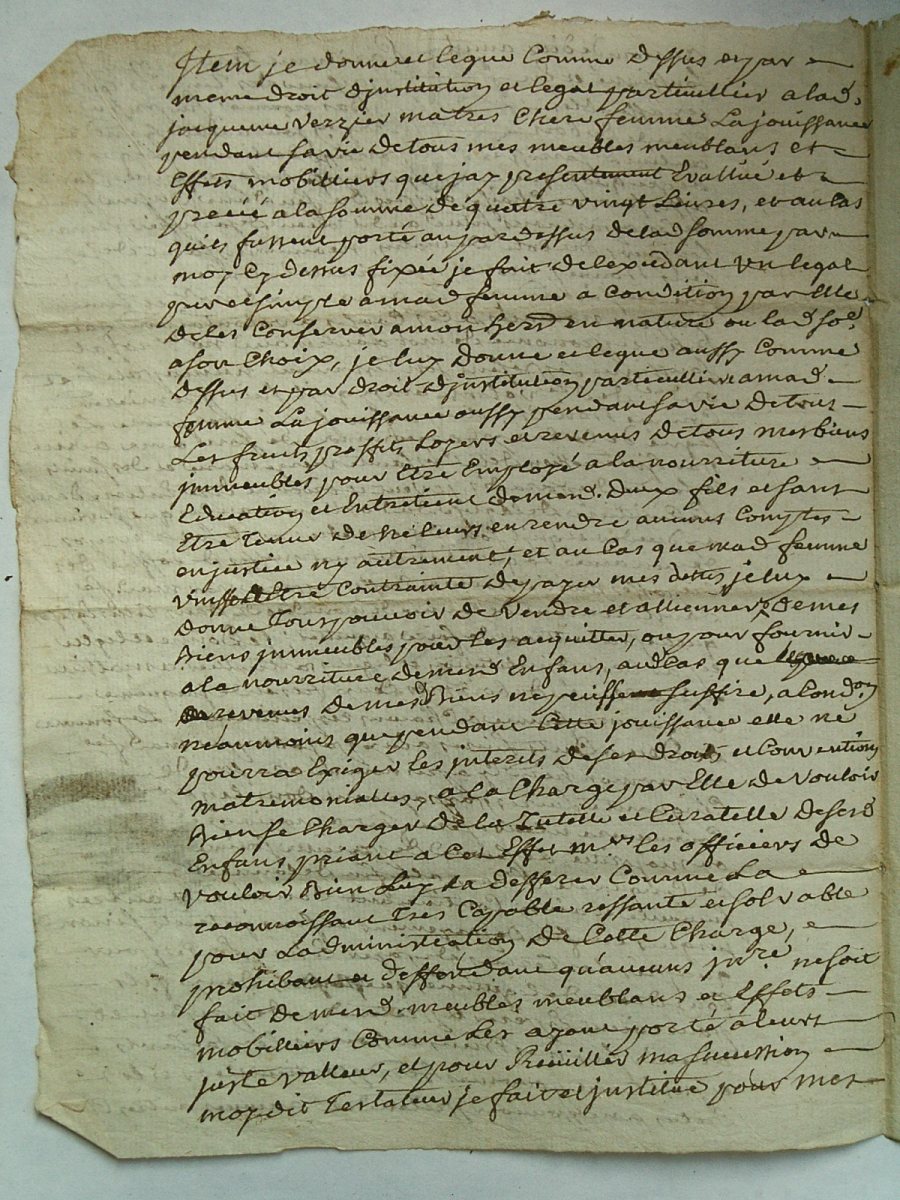 Item je donne et legue Comme dessus et par
meme droit djnstitution et legat particullier a lad.
jacqueme Verzier ma tres Chere femme La jouissance
pendant sa vie de tous mes meubles meublans et
Effets mobilliers que jay presentement Evallué et
precié a la somme de quattre vingt Livres, et au Cas
quils fussent porté au par dessus de lad somme par
moy Cy dessus fixée je fait de lexcedant un legat
pur et simple a mad femme a Condition par Elle
de les Conserver a mon herd en nature ou lad soe
a son Choix, je luy donne et legue aussy Comme
dessus et par droit djnstitution particulliere a mad
femme La jouissance aussy pendant sa vie de tous
Les fruits proffits Loyers et revenus de tous mes biens
jmmeubles pour Etre Employé a la nourriture
Education et Entretient de mesd. deux fils et sans
Etre tenue de ne leurs en rendre aucuns Comptes
en justice ny autrement, et au Cas que mad femme
vinsse a Etre Contrainte de payer mes dettes je luy
donne Tous pouvoir de vendre et allienner de mes
Biens jmmeubles pour les acquitter, ou pour fournir
a la nourriture de mesd Enfans, aud Cas que
revenus de mesd Biens ne puissent suffire, a Condon
néaumoins que pendant Cette jouissance elle ne
pourra Exiger les jnterits de ses droits et Conventions
matremonialles, a la Charge par Elle de vouloir
Bien se Charger de la Tutelle et Curatelle de sesd
Enfans priant a Cet Effet mrs les officiers de
vouloir Bien Luy La defferer Comme La
reconnoissant tres Capable ressante et solvable
pour Ladministration de Cette Charge,
prohibant et deffendant quaucuns jnvre ne soit
fait de mesd. meubles meublans et Effets
mobilliers Comme Les ayant porté a leurs
juste valleur, et pour Reciüillir ma succession
moy dit Testateur je fait et jnstitue pour mes